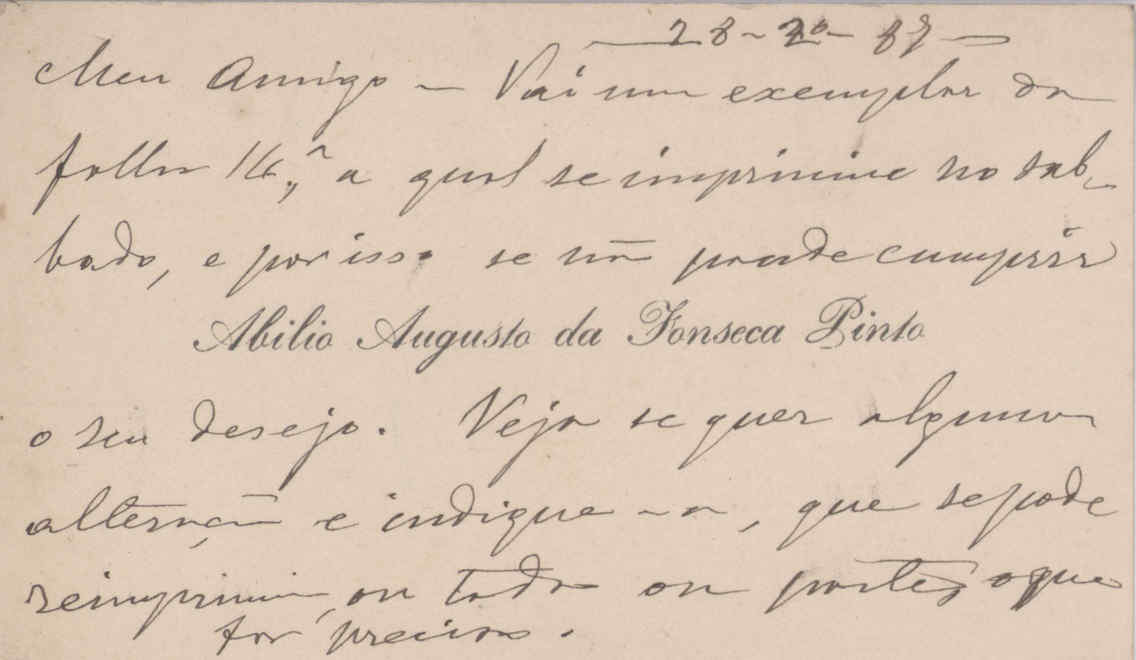 28-2º-87
Meu Amigo – Vai um exemplar da
folha 16,ª a qual se imprimiu no sab-
bado, e por isso se não poude cumprir
Abilio Augusto da Fonseca Pinto
o seu desejo. Veja se quer alguma
alteração e indique-a, que se pode
reimprimir, ou toda ou parte, o que
for preciso.